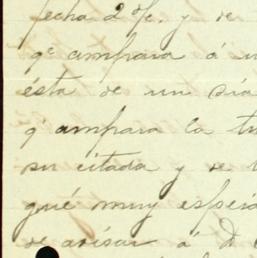 fecha 2 de. y de
qe ampara á
ésta de un día
qe ampara la
su citada y de
qué muy espera
de avisar á D